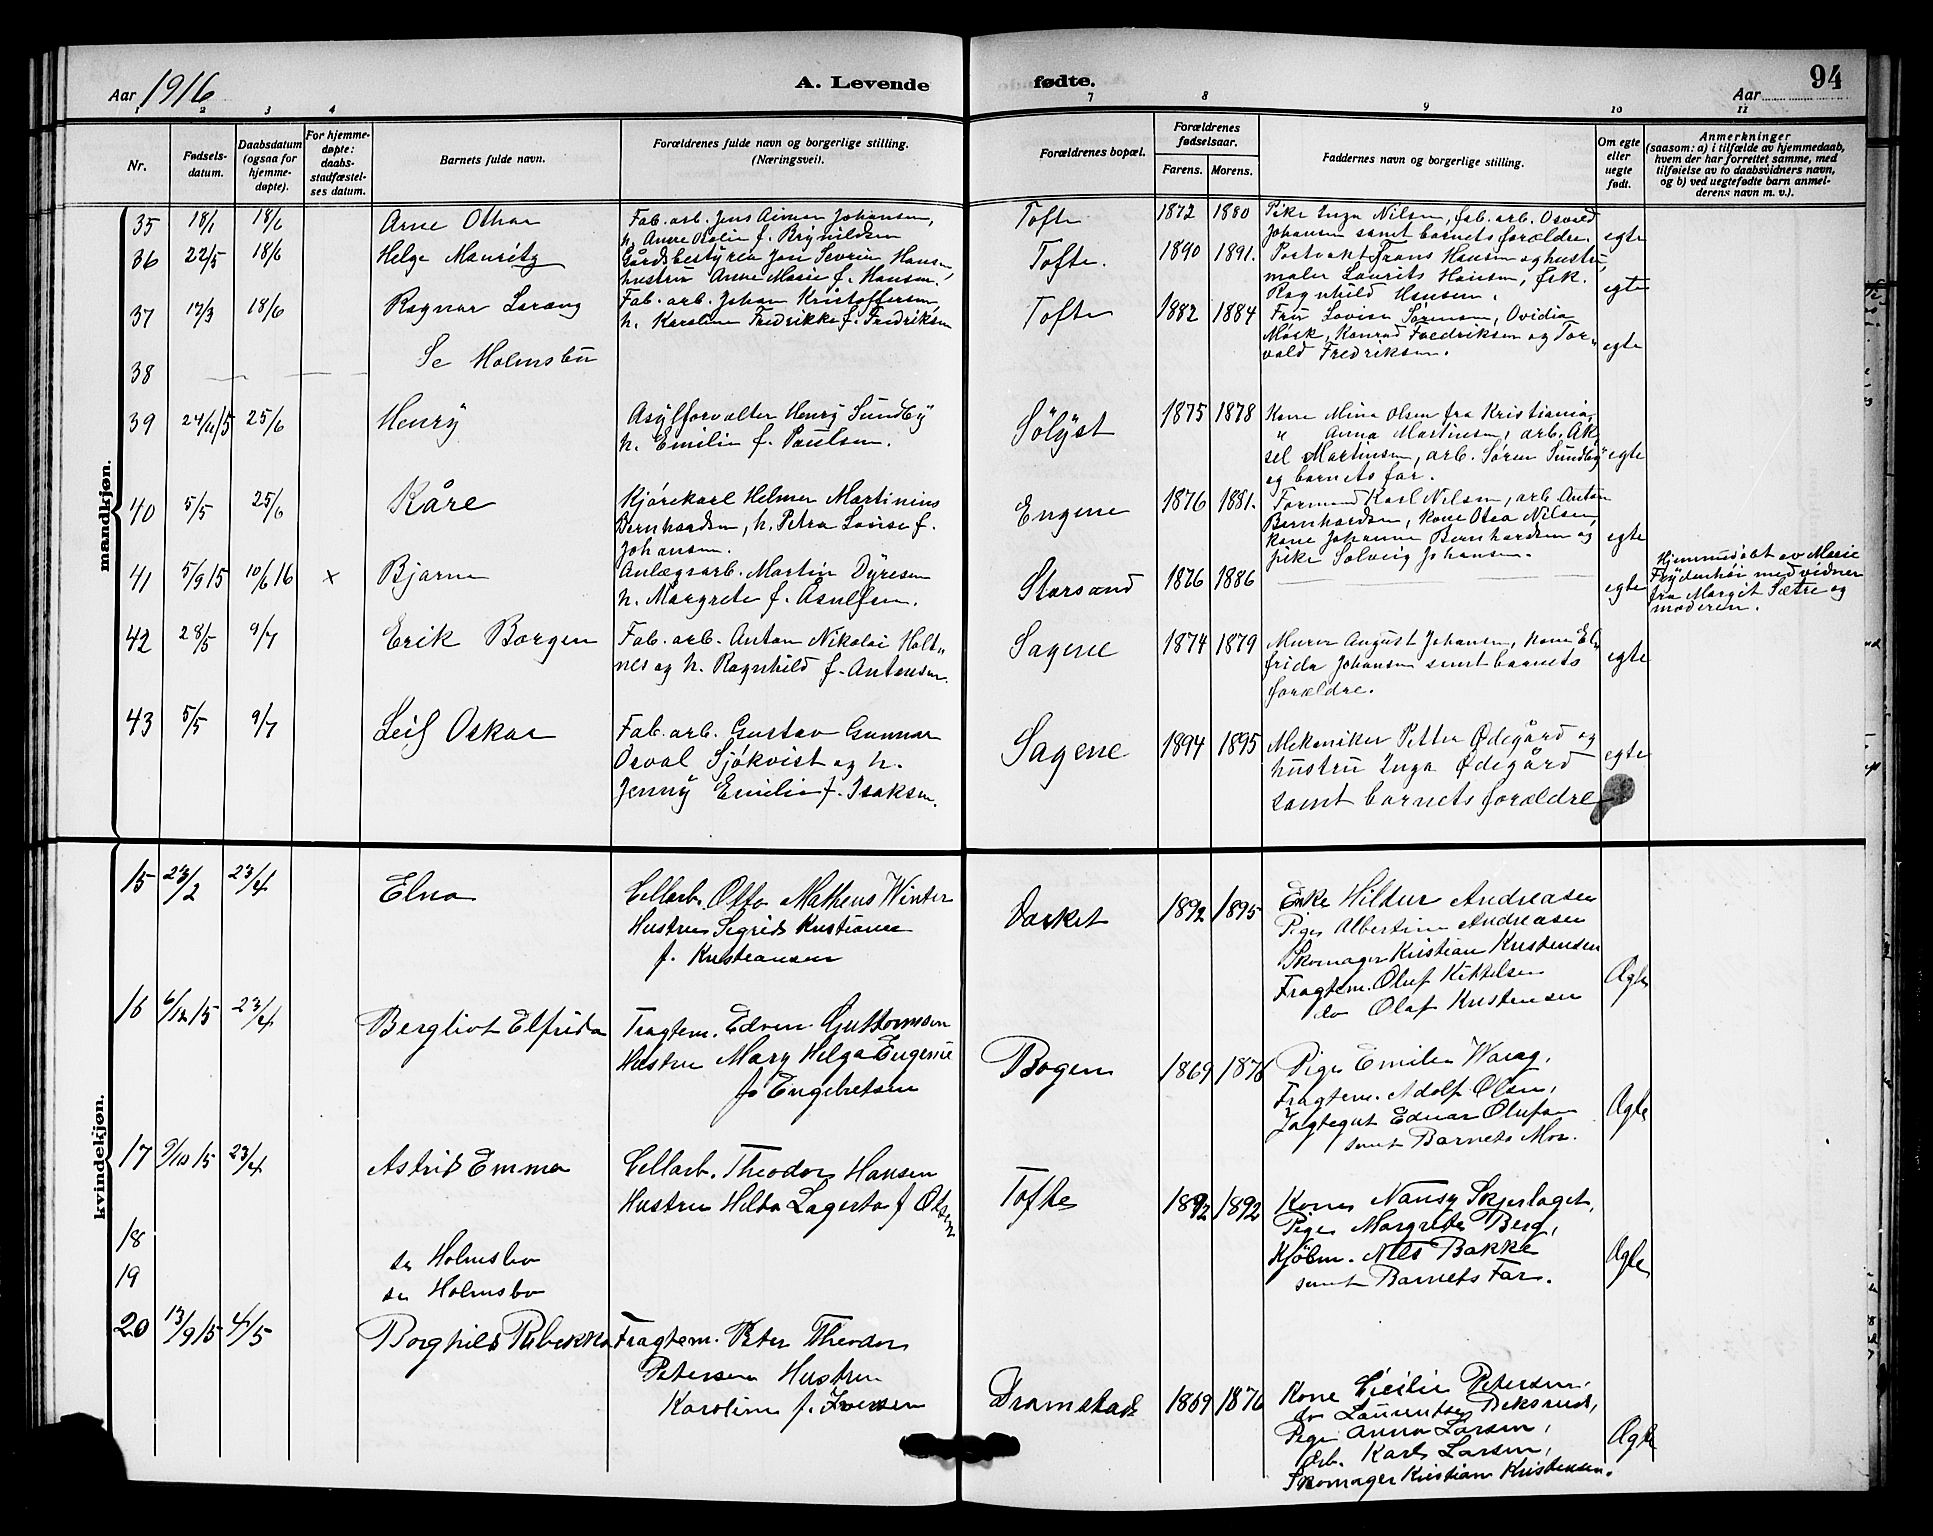 Aar 1916
A. Levende
fødte.
94
Aar
1 2 3 4
7 8 9 10 11
Nr.
Fødsels-
datum.
Daabsdatum
(ogsaa for
hjemme-
døpte).
For hjemme-
døpte:
daabs-
stadfæstel-
ses datum.
Barnets fulde navn.
Forældrenes fulde navn og borgerlige stilling.
(Næringsvei).
Forældrenes bopæl.
Forældrenes
fødselsaar.
Farens. Morens.
Faddernes navn og borgerlige stilling.
Om egte
eller
uegte
født.
Anmerkninger
(saasom: a) i tilfælde av hjemmedaab,
hvem der har forrettet samme, med
tilføielse av to daabsvidners navn,
og b) ved uegtefødte barn anmel-
derens navn m. v.).
mandkjøn.
35 18/1 18/6 Arne Othar
Fab. arb. Jens Johansen,
h. Anne f. Brynildsen
Tofte 1872 1880
Pike Inga Nilsen, fab. arb. Osvald
Johansen samt barnets forældre.
egte
36 22/5 18/6 Helge Mauritz
Gårdsbestyrer Jon Severin Hansen,
hustru Anne Marie f. Hansen.
Tofte. 1890 1891.
Postvakt Frans Hansen og hustru,
maler Laurits Hansen, frk.
Ragnhild Hansen.
egte
37 17/3 18/6 Ragnar Lorang
Fab. arb. Johan Kristoffersen,
h. Karoline Fredrikke f. Fredriksen
Tofte 1882 1884
Fru Lovise Sørensen, Ovidia
Mosk, Konrad Fredriksen og Tor-
vald Fredriksen.
egte
38 Se Holmsbu
39 24/11 15 25/6 Henry
Asylforvalter Henry Sundby
h. Emilie f. Paulsen.
Sølyst 1875 1878
Kone Mina Olsen fra Kristiania,
" Anna Martinsen, arb. Ak-
sel Martinsen, arb. Søren Sundby
og barnets far.
egte
40 5/5 25/6 Kåre
Kjørekarl Helmer Martinius
Bernhardsen, h. Petra Lovise f.
Johansen.
Engene 1876 1881.
Formand Karl Nilsen, arb. Anton
Bernhardsen, kone Osea Nilsen,
kone Johanne Bernhardsen og
pike Solveig Johansen.
egte
41 5/9 15 10/6 16 x Bjarne
Anlægsarb. Martin Dyresen
h. Margrete f. Asulfsen.
Storsand 1876 1886
egte
Hjemmedøbt av Marie
Frydenhøi med vidner
fru Marget Sætre og
moderen.
42 28/5 9/7 Erik Borgen
Fab. arb. Anton Nikolai Holt-
nes og h. Ragnhild f. Antonsen.
Sagene 1874 1879
Murer August Johansen, kone El-
frida Johansen samt barnets
forældre.
egte
43 5/5 9/7 Leif Oskar
Fab. arb. Gustav Gunnar
Osval Sjøkvist og h.
Jenny Emilie f. Isaksen.
Sagene 1894 1895
Mekaniker Petter Ødegård og
hustru Inga Ødegård
samt barnets forældre
egte
kvindekjøn.
15 23/2 23/4 Elna
Cellarb. Otto Matheus Winter
Hustru Sigrid Kristiane
f. Kristiansen
1892 1895
Enke Hildur Andreasen
Pige Albertine Andreasen
Skomager Kristian Kristensen
Fragtem. Oluf Kittelsen
do Olaf Kristensen
Ægte
16 6/12 15 23/4 Bergliot Elfrida
Fragtem. Edvin Guttormsen
Hustru Mary Helga Eugenie
f. Engebretsen
Bogen 1869 1876
Pige Emilie Warag,
Fragtem. Adolf Olsen,
Jagtegut Edvar Olufsen
samt Barnets Mor.
Ægte
17 9/10 15 23/4 Astrid Emma
Cellarb. Theodor Hansen
Hustru Hilda Lagerta f Olsen
Tofte 1892 1892
Kone Nansy Skjerlaget,
Pige Margrete Berg,
Kjøbm. Nils Bakke
samt Barnets Far.
Ægte
18 se Holmsbo
19 se Holmsbo
20 13/9 15 4/5 Borghild Rebekka
Fragtem. Peter Theodor
Petersen Hustru
Karoline f. Iversen
Dramstad 1869 1876
Kone Cicilie Petersen,
do Laurentse Beksrud,
Pige Anna Larsen,
Arb. Karl Larsen,
Skomager Kristian Kristensen.
Ægte